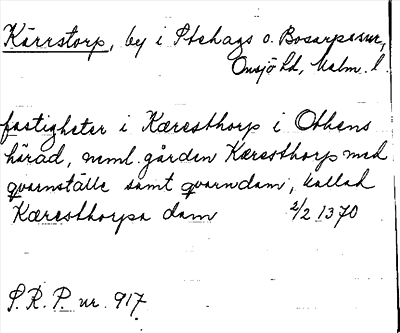 Kärrstorp, by i Stehags o. Bosarpssnr,
Onsjö hd, Malm. l.
fastigheter i Kæresthorp i Othens
härad, neml. gården Kæresthorp med
qvarnställe samt qvarndam, kallad
Kæresthorpa dam 2/2 1370
S. R. P. nr. 917